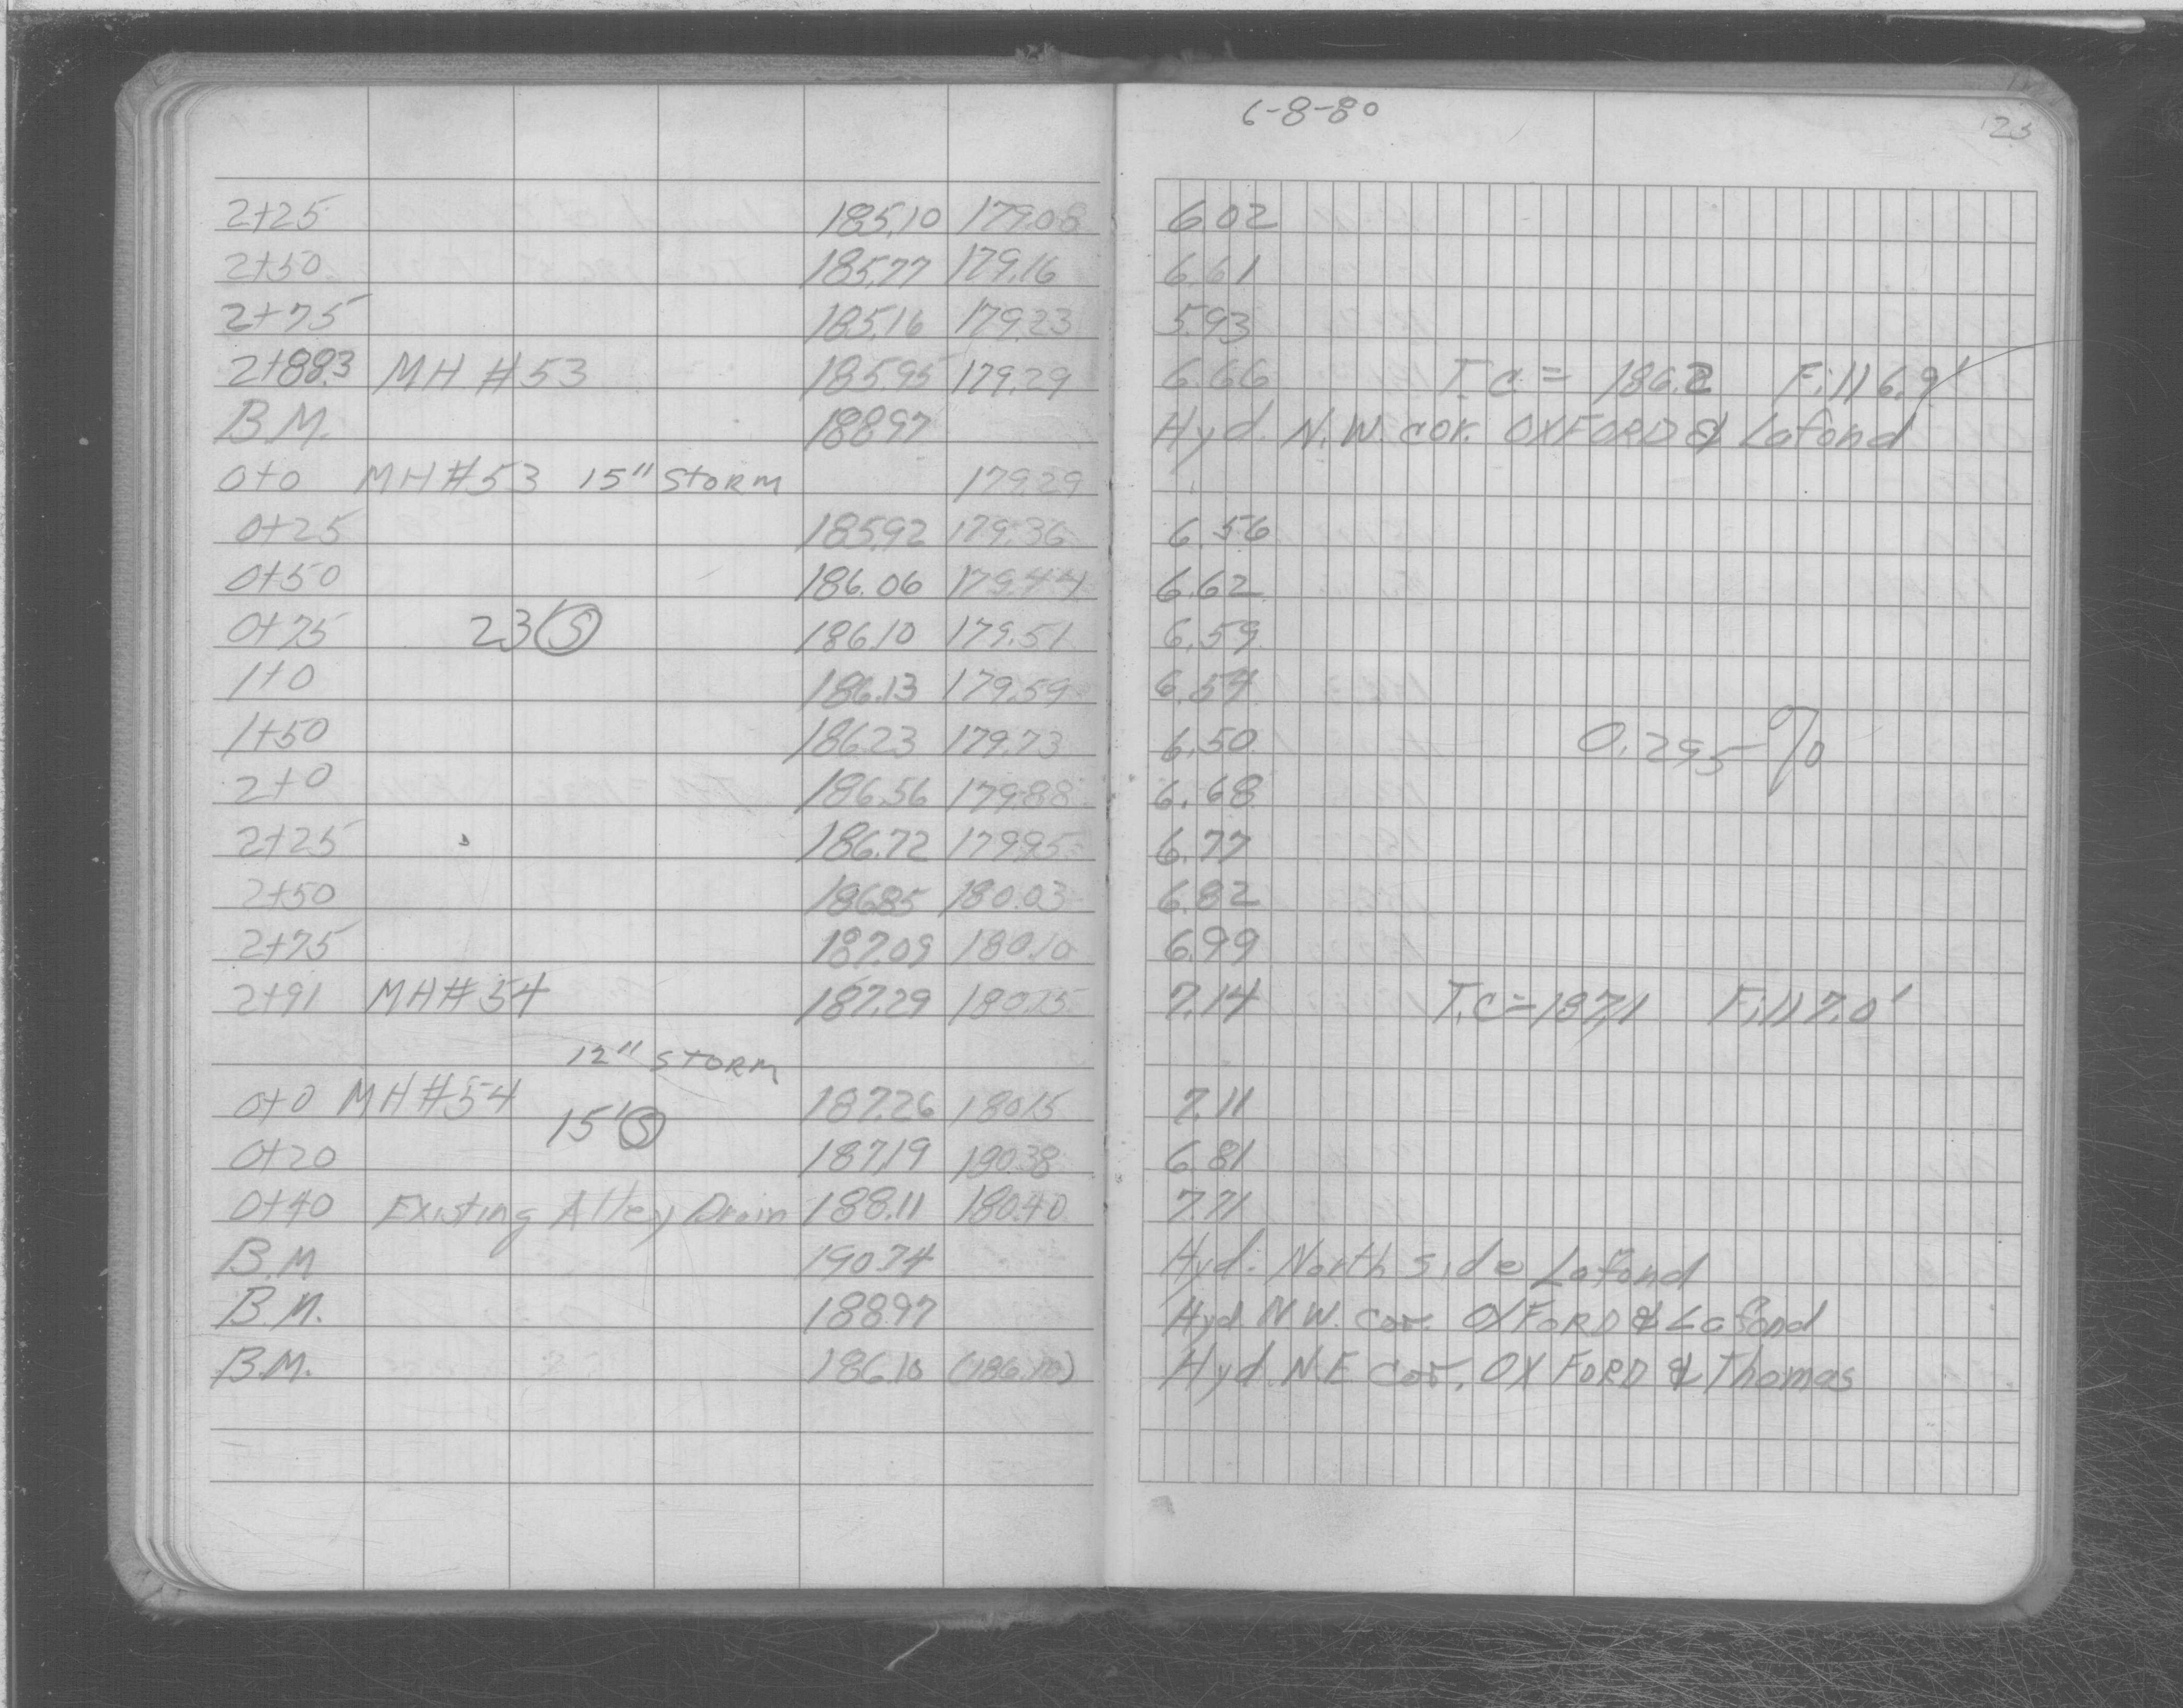 6-8-80 23
2+25 185.10 179.08 6.02
2+50 185.77 179.16 6.61
2+75 185.16 179.23 5.93
2+88.3 MH #53 185.95 179.29 6.66 T.C.= 186.2 Fill 6.9'
B.M. 188.97 Hyd. N.W. cor. OXFORD & Lafond
0+0 MH #53 15" STORM 179.29
0+25 185.92 179.36 6.56
0+50 186.06 179.44 6.62
0+75 23'Ⓢ 186.10 179.51 6.59
1+0 186.13 179.59 6.54
1+50 186.23 179.73 6.50 0.295%
2+0 186.56 179.88 6.68
2+25 186.72 179.95 6.77
2+50 186.85 180.03 6.82
2+75 187.09 180.10 6.99
2+91 MH #54 187.29 180.15 7.14 T.C=187.1 Fill 7.0'
12" STORM
0+0 MH #54 15'Ⓢ 187.26 180.15 7.11
0+20 187.19 180.38 6.81
0+40 Existing Alley Drain 188.11 180.40 7.71
B.M 190.74 Hyd. North side Lafond
B.M. 188.97 Hyd N.W. cor. OXFORD & Lafond
B.M. 186.10 (186.10) Hyd. N.E cor. OXFORD & Thomas